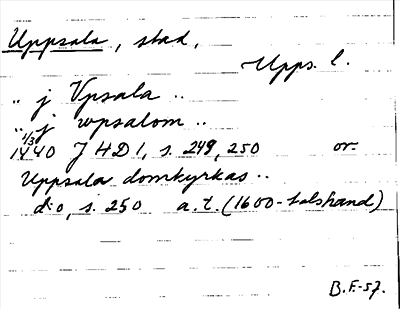 Uppsala, stad,
Upps. l.
.. j Vpsala ..
.. j wpsalom ..
1/3
1440 JHD 1, s. 249, 250 or.
Uppsala domkyrkas ..
d:o, s. 250 a.t. (1600-talshand)
B.F.-57.